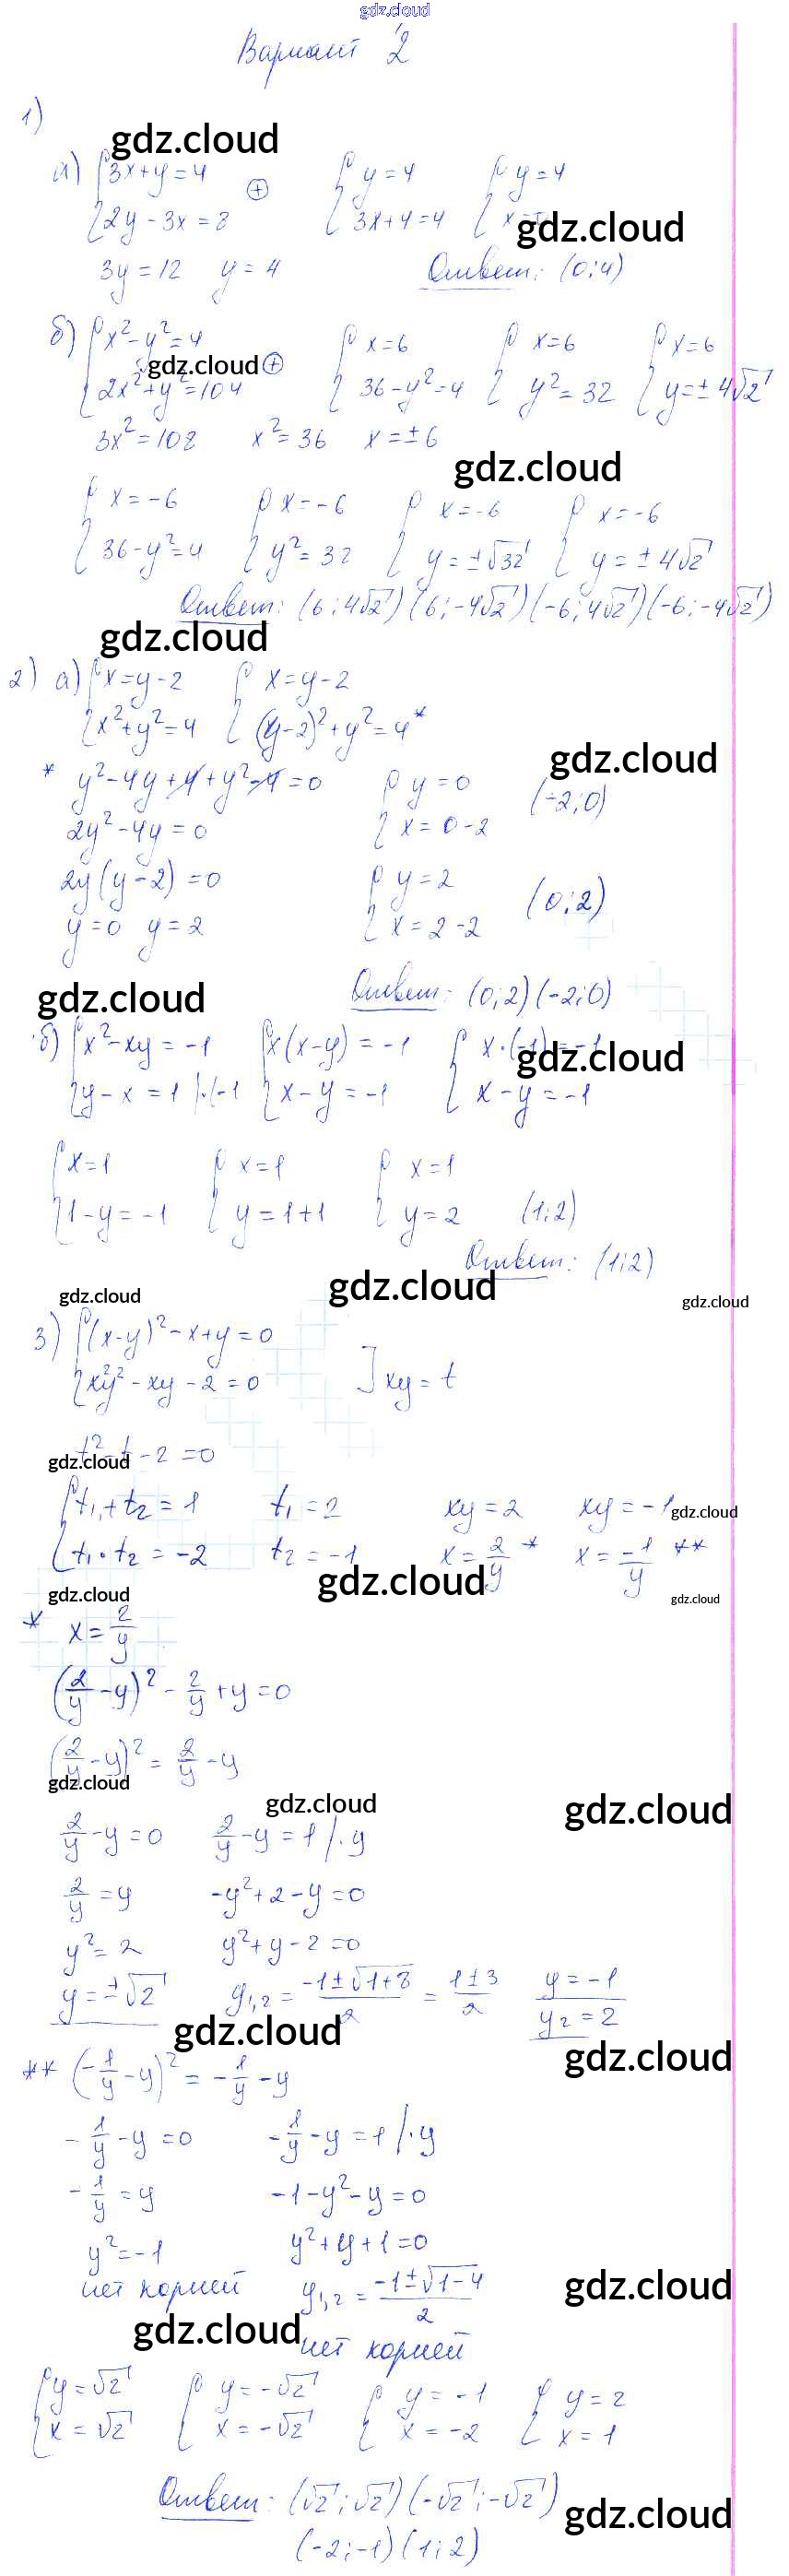 gdz.cloud
Вариант 2
1)
gdz.cloud
а) {3x+y=4 ⊕ {y=4 {y=4
{2y-3x=8 {3x+4=4 {x= gdz.cloud
3y=12 y=4 Ответ: (0;4)
б) {x²-y²=4 ⊕ {x=6 {x=6 {x=6
gdz.cloud
{2x²+y²=104 {36-y²=4 {y²=32 {y=±4√2
3x²=108 x²=36 x=±6
gdz.cloud
{x=-6 {x=-6 {x=-6 {x=-6
{36-y²=4 {y²=32 {y=±√32 {y=±4√2
Ответ: (6;4√2)(6;-4√2)(-6;4√2)(-6;-4√2)
gdz.cloud
2) а) {x=y-2 {x=y-2
{x²+y²=4 {(y-2)²+y²=4*
gdz.cloud
* y²-4y+4+y²-4=0 {y=0 (-2;0)
2y²-4y=0 {x=0-2
2y(y-2)=0 {y=2 (0;2)
y=0 y=2 {x=2-2
gdz.cloud Ответ: (0;2)(-2;0)
б) {x²-xy=-1 {x(x-y)=-1 {x·(-1)=-1
gdz.cloud
{y-x=1 |·(-1 {x-y=-1 {x-y=-1
{x=1 {x=1 {x=1
{1-y=-1 {y=1+1 {y=2 (1;2)
Ответ: (1;2)
gdz.cloud gdz.cloud gdz.cloud
3) {(x-y)²-x+y=0
{x²y²-xy-2=0 ] xy=t
gdz.cloud
t²-t-2=0
{t₁+t₂=1 t₁=2 xy=2 xy=-1 gdz.cloud
{t₁·t₂=-2 t₂=-1 x=2/y * x=-1/y **
gdz.cloud gdz.cloud gdz.cloud
* x=2/y
(2/y-y)²-2/y+y=0
(2/y-y)²=2/y-y
gdz.cloud gdz.cloud gdz.cloud
2/y-y=0 2/y-y=1 /·y
2/y=y -y²+2-y=0
y²=2 y²+y-2=0
y=±√2 y₁,₂=(-1±√(1+8))/2=(1±3)/2 y=-1
y₂=2
gdz.cloud gdz.cloud
** (-1/y-y)²=-1/y-y
-1/y-y=0 -1/y-y=1 /·y
-1/y=y -1-y²-y=0
y²=-1 y²+y+1=0
нет корней y₁,₂=(-1±√(1-4))/2 gdz.cloud
gdz.cloud нет корней
{y=√2 {y=-√2 {y=-1 {y=2
{x=√2 {x=-√2 {x=-2 {x=1
Ответ: (√2;√2)(-√2;-√2) gdz.cloud
(-2;-1)(1;2)